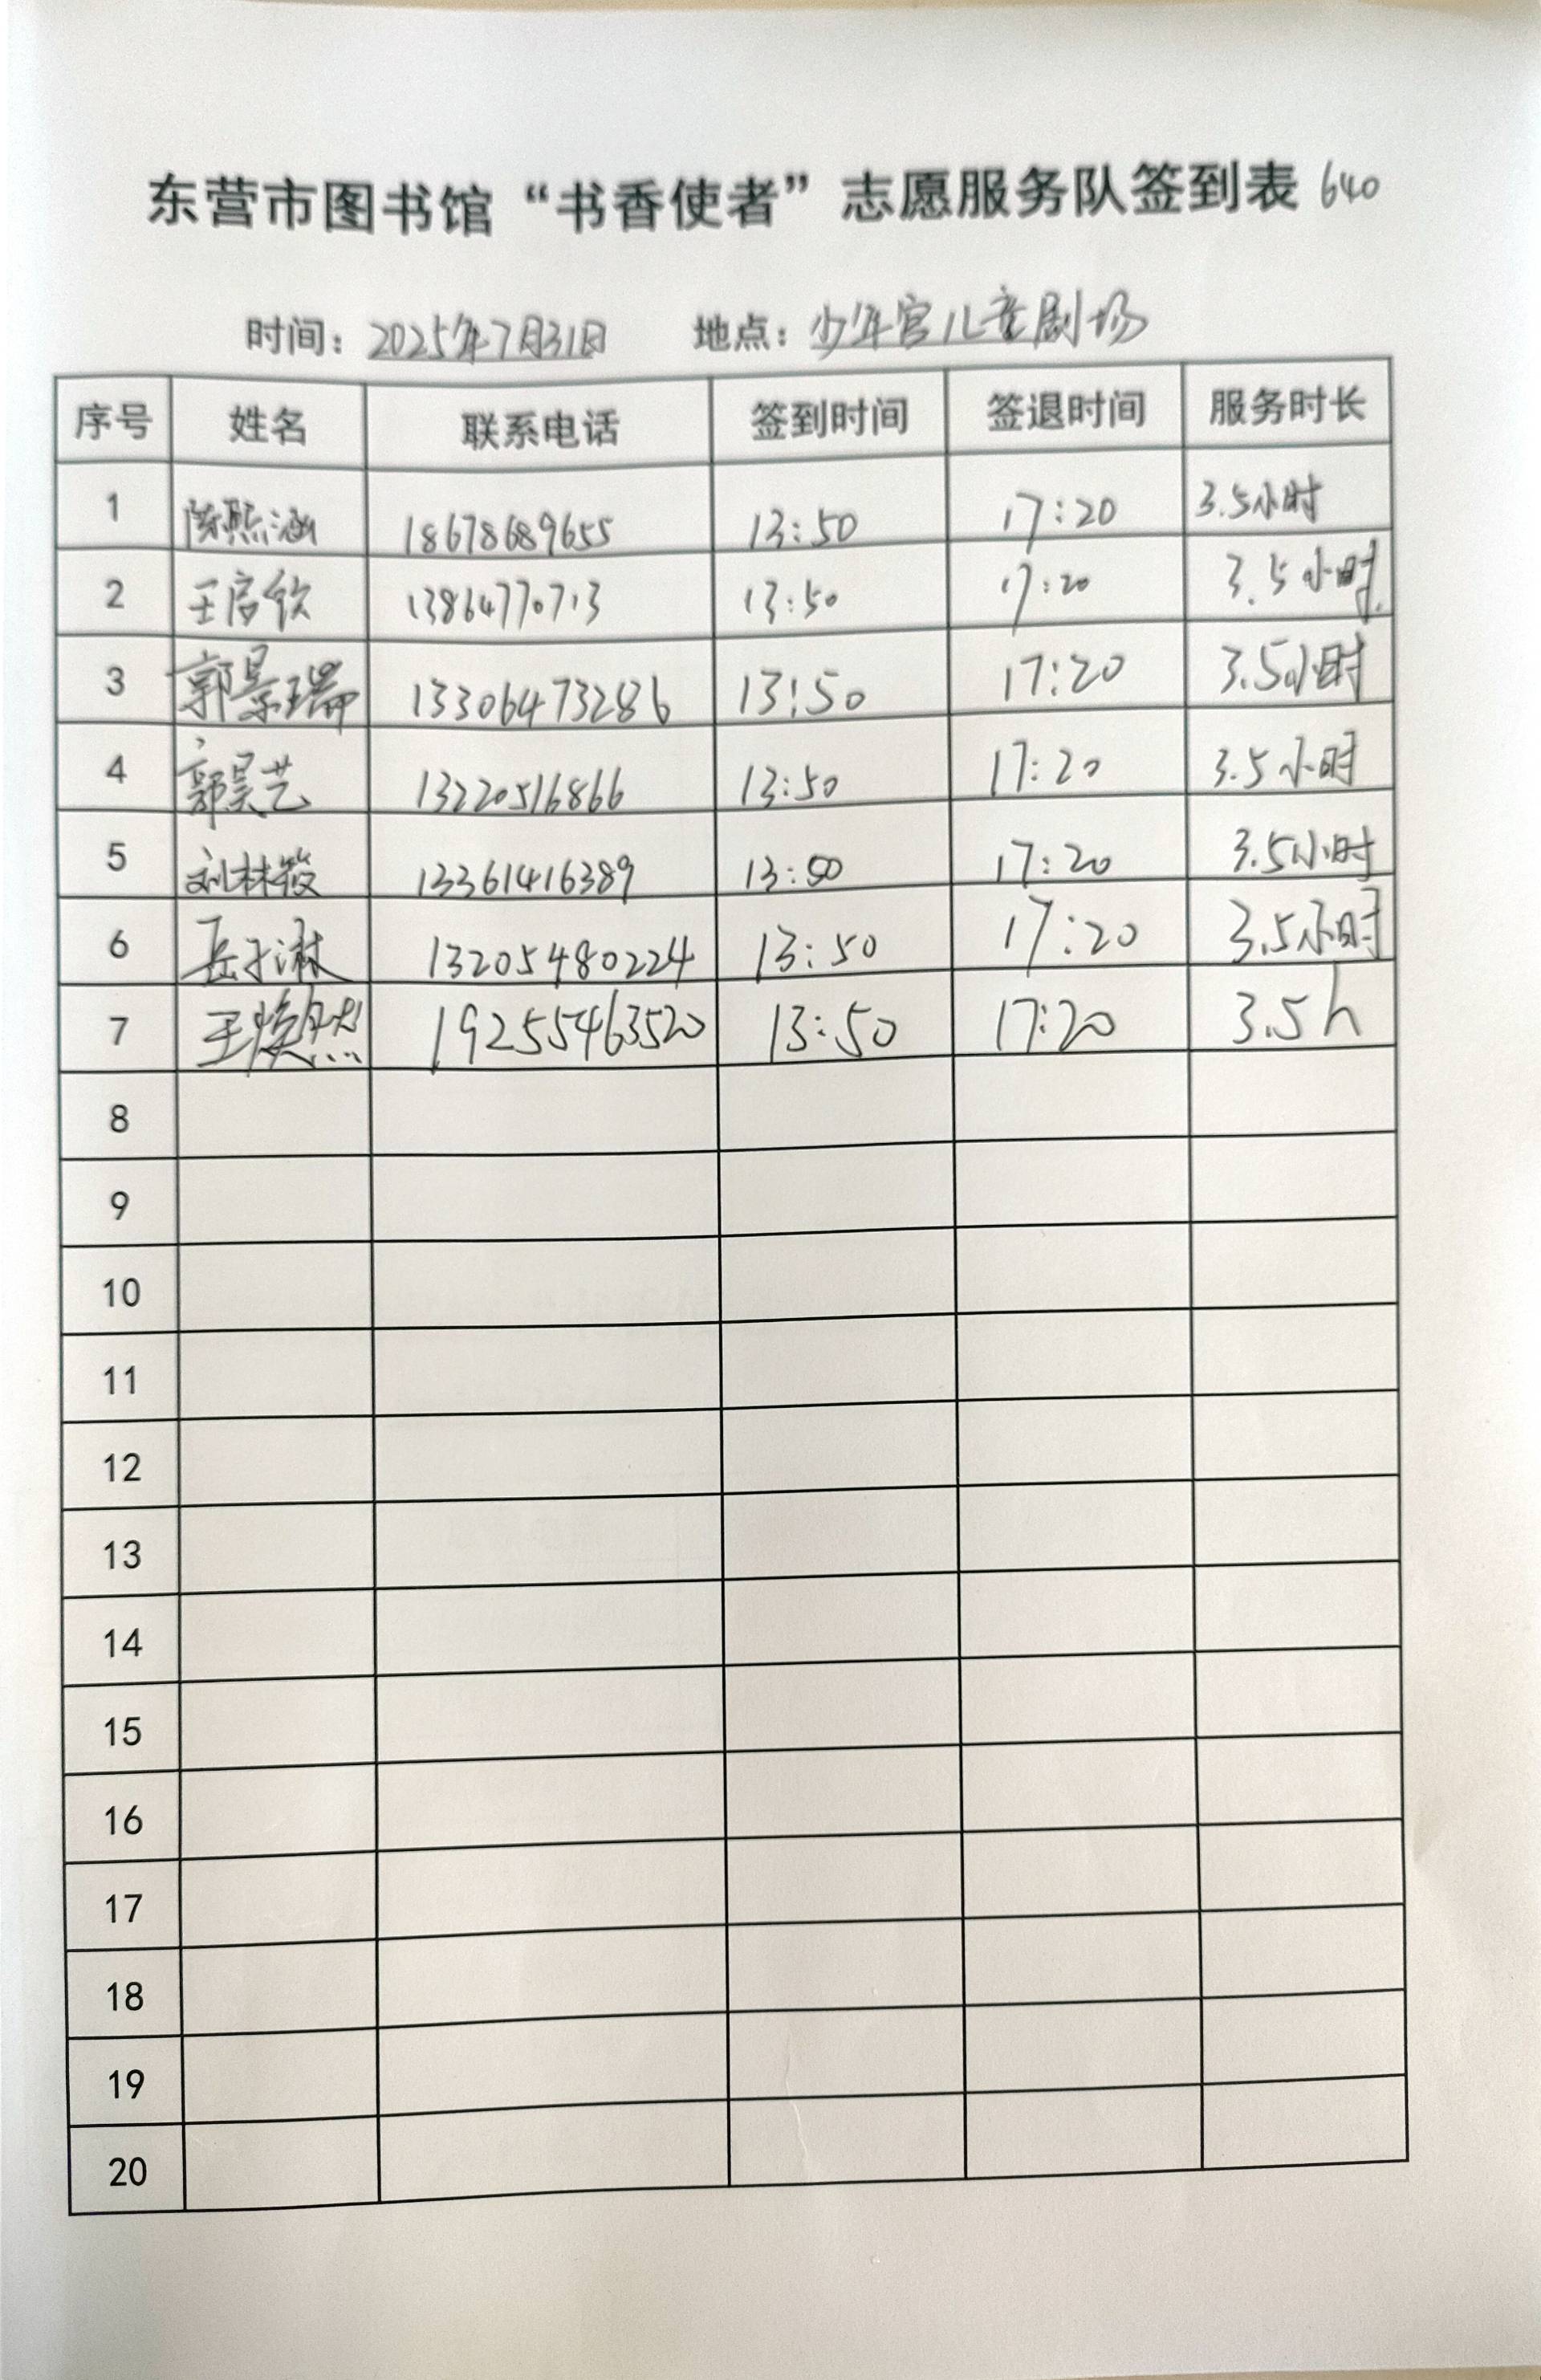 东营市图书馆“书香使者”志愿服务队签到表 640
时间：2025年7月31日 地点：少年宫儿童剧场
序号 姓名 联系电话 签到时间 签退时间 服务时长
1 陈熙涵 18678689655 13:50 17:20 3.5小时
2 王启钦 13864770713 13:50 17:20 3.5小时
3 郭景瑞 13306473286 13:50 17:20 3.5小时
4 郭昊艺 13220516866 13:50 17:20 3.5小时
5 刘林筱 13361416389 13:50 17:20 3.5小时
6 岳子淋 13205480224 13:50 17:20 3.5小时
7 王焕然 19255463520 13:50 17:20 3.5h
8
9
10
11
12
13
14
15
16
17
18
19
20